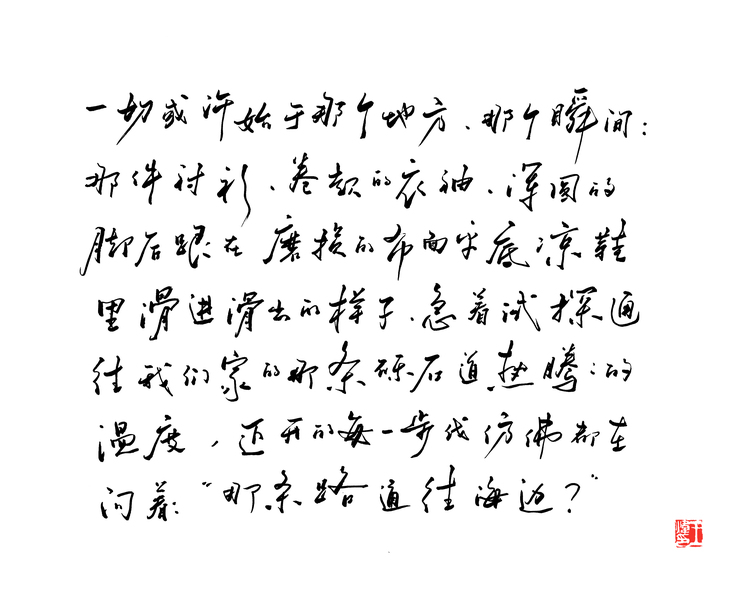 一切或许始于那个地方、那个瞬间：
那件衬衫、卷起的衣袖、浑圆的
脚后跟在磨损的布面平底凉鞋
里滑进滑出的样子、急着试探通
往我们家的那条砾石道热腾腾的
温度，迈开的每一步伐仿佛都在
问着：“那条路通往海边？”